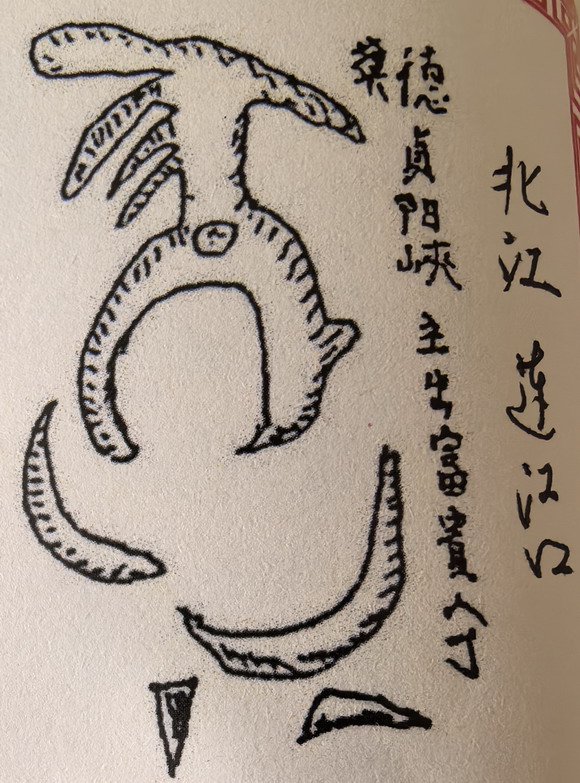 北江 連江口
英德貞阳峡 主出富貴人丁